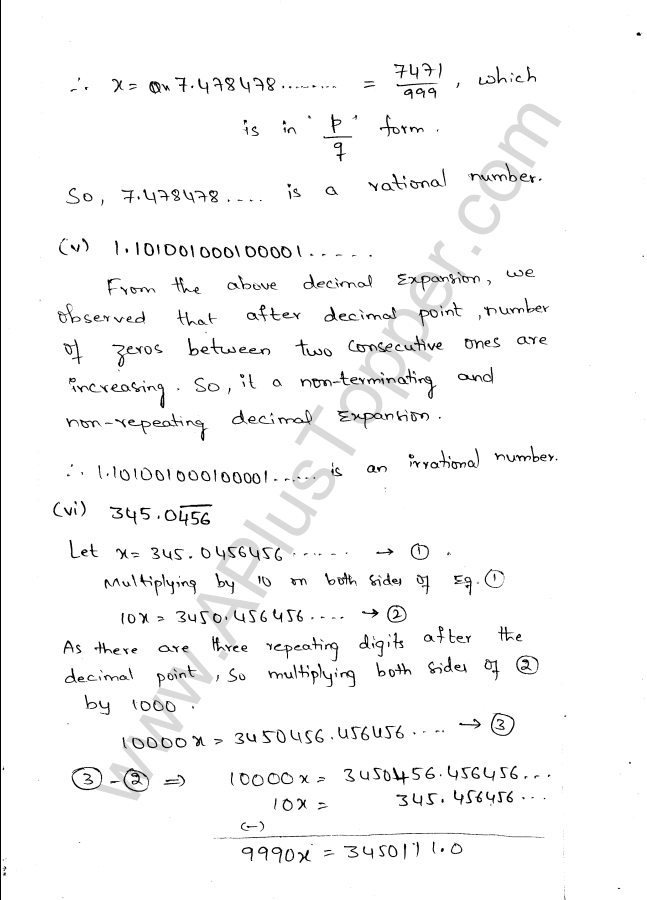 ∴ x = 7.478478......... = 7471/999, which
is in 'p/q' form.
So, 7.478478.... is a rational number.
(v) 1.101001000100001.....
From the above decimal Expansion, we
observed that after decimal point, number
of zeros between two consecutive ones are
increasing. So, it a non-terminating and
non-repeating decimal Expantion.
∴ 1.101001000100001...... is an irrational number.
(vi) 345.0\overline{456}
Let x = 345.0456456...... → ①.
Multiplying by 10 on both sides of Eq. ①
10x = 3450.456456.... → ②
As there are three repeating digits after the
decimal point, So multiplying both sides of ②
by 1000.
10000x = 3450456.456456.... → ③
③ - ② ⇒ 10000x = 3450456.456456...
10x = 345.456456...
(-)
9990x = 3450111.0
www.APlusTopper.com